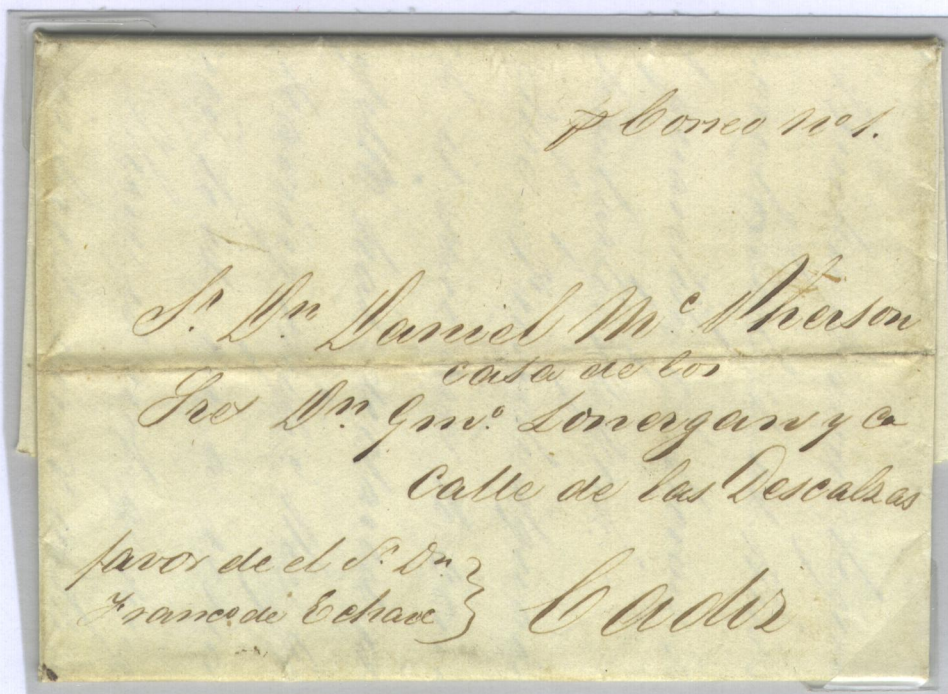 p Correo No 1.
Sr. Dn Daniel Mc Pherson
casa de los
Sres Dn Gmo. Lonergan y Ca
Calle de las Descalzas
favor de el Sr. Dn.
Franco de Echave
Cadiz